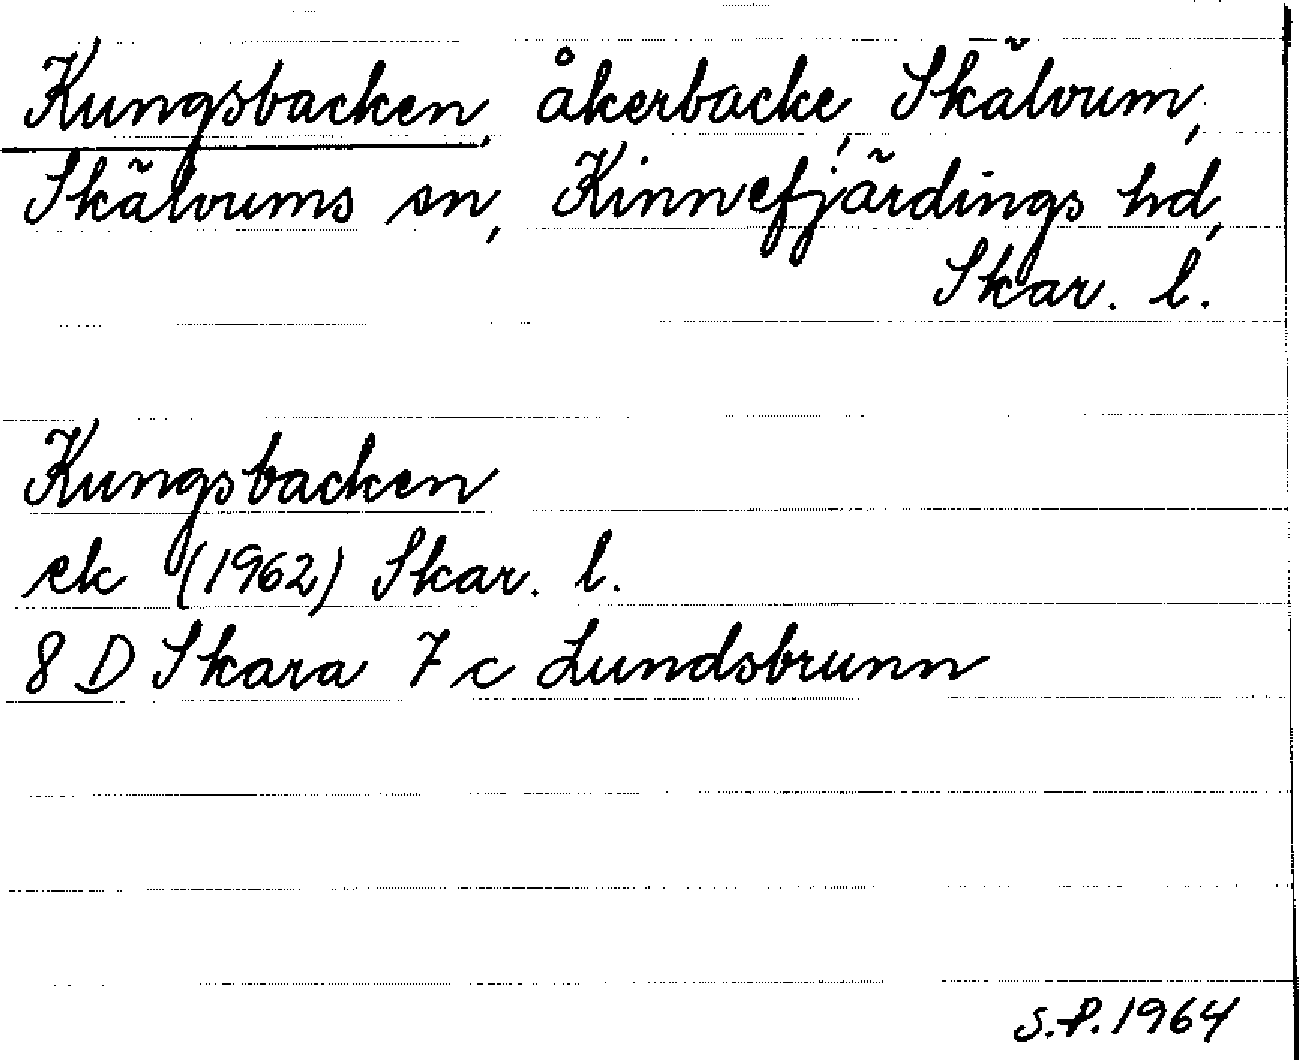 Kungsbacken, åkerbacke, Skälvum,
Skälvums sn, Kinnefjärdings hd,
Skar. l.
Kungsbacken
ek (1962) Skar. l.
8 D Skara 7 c Lundsbrunn
S.P. 1964